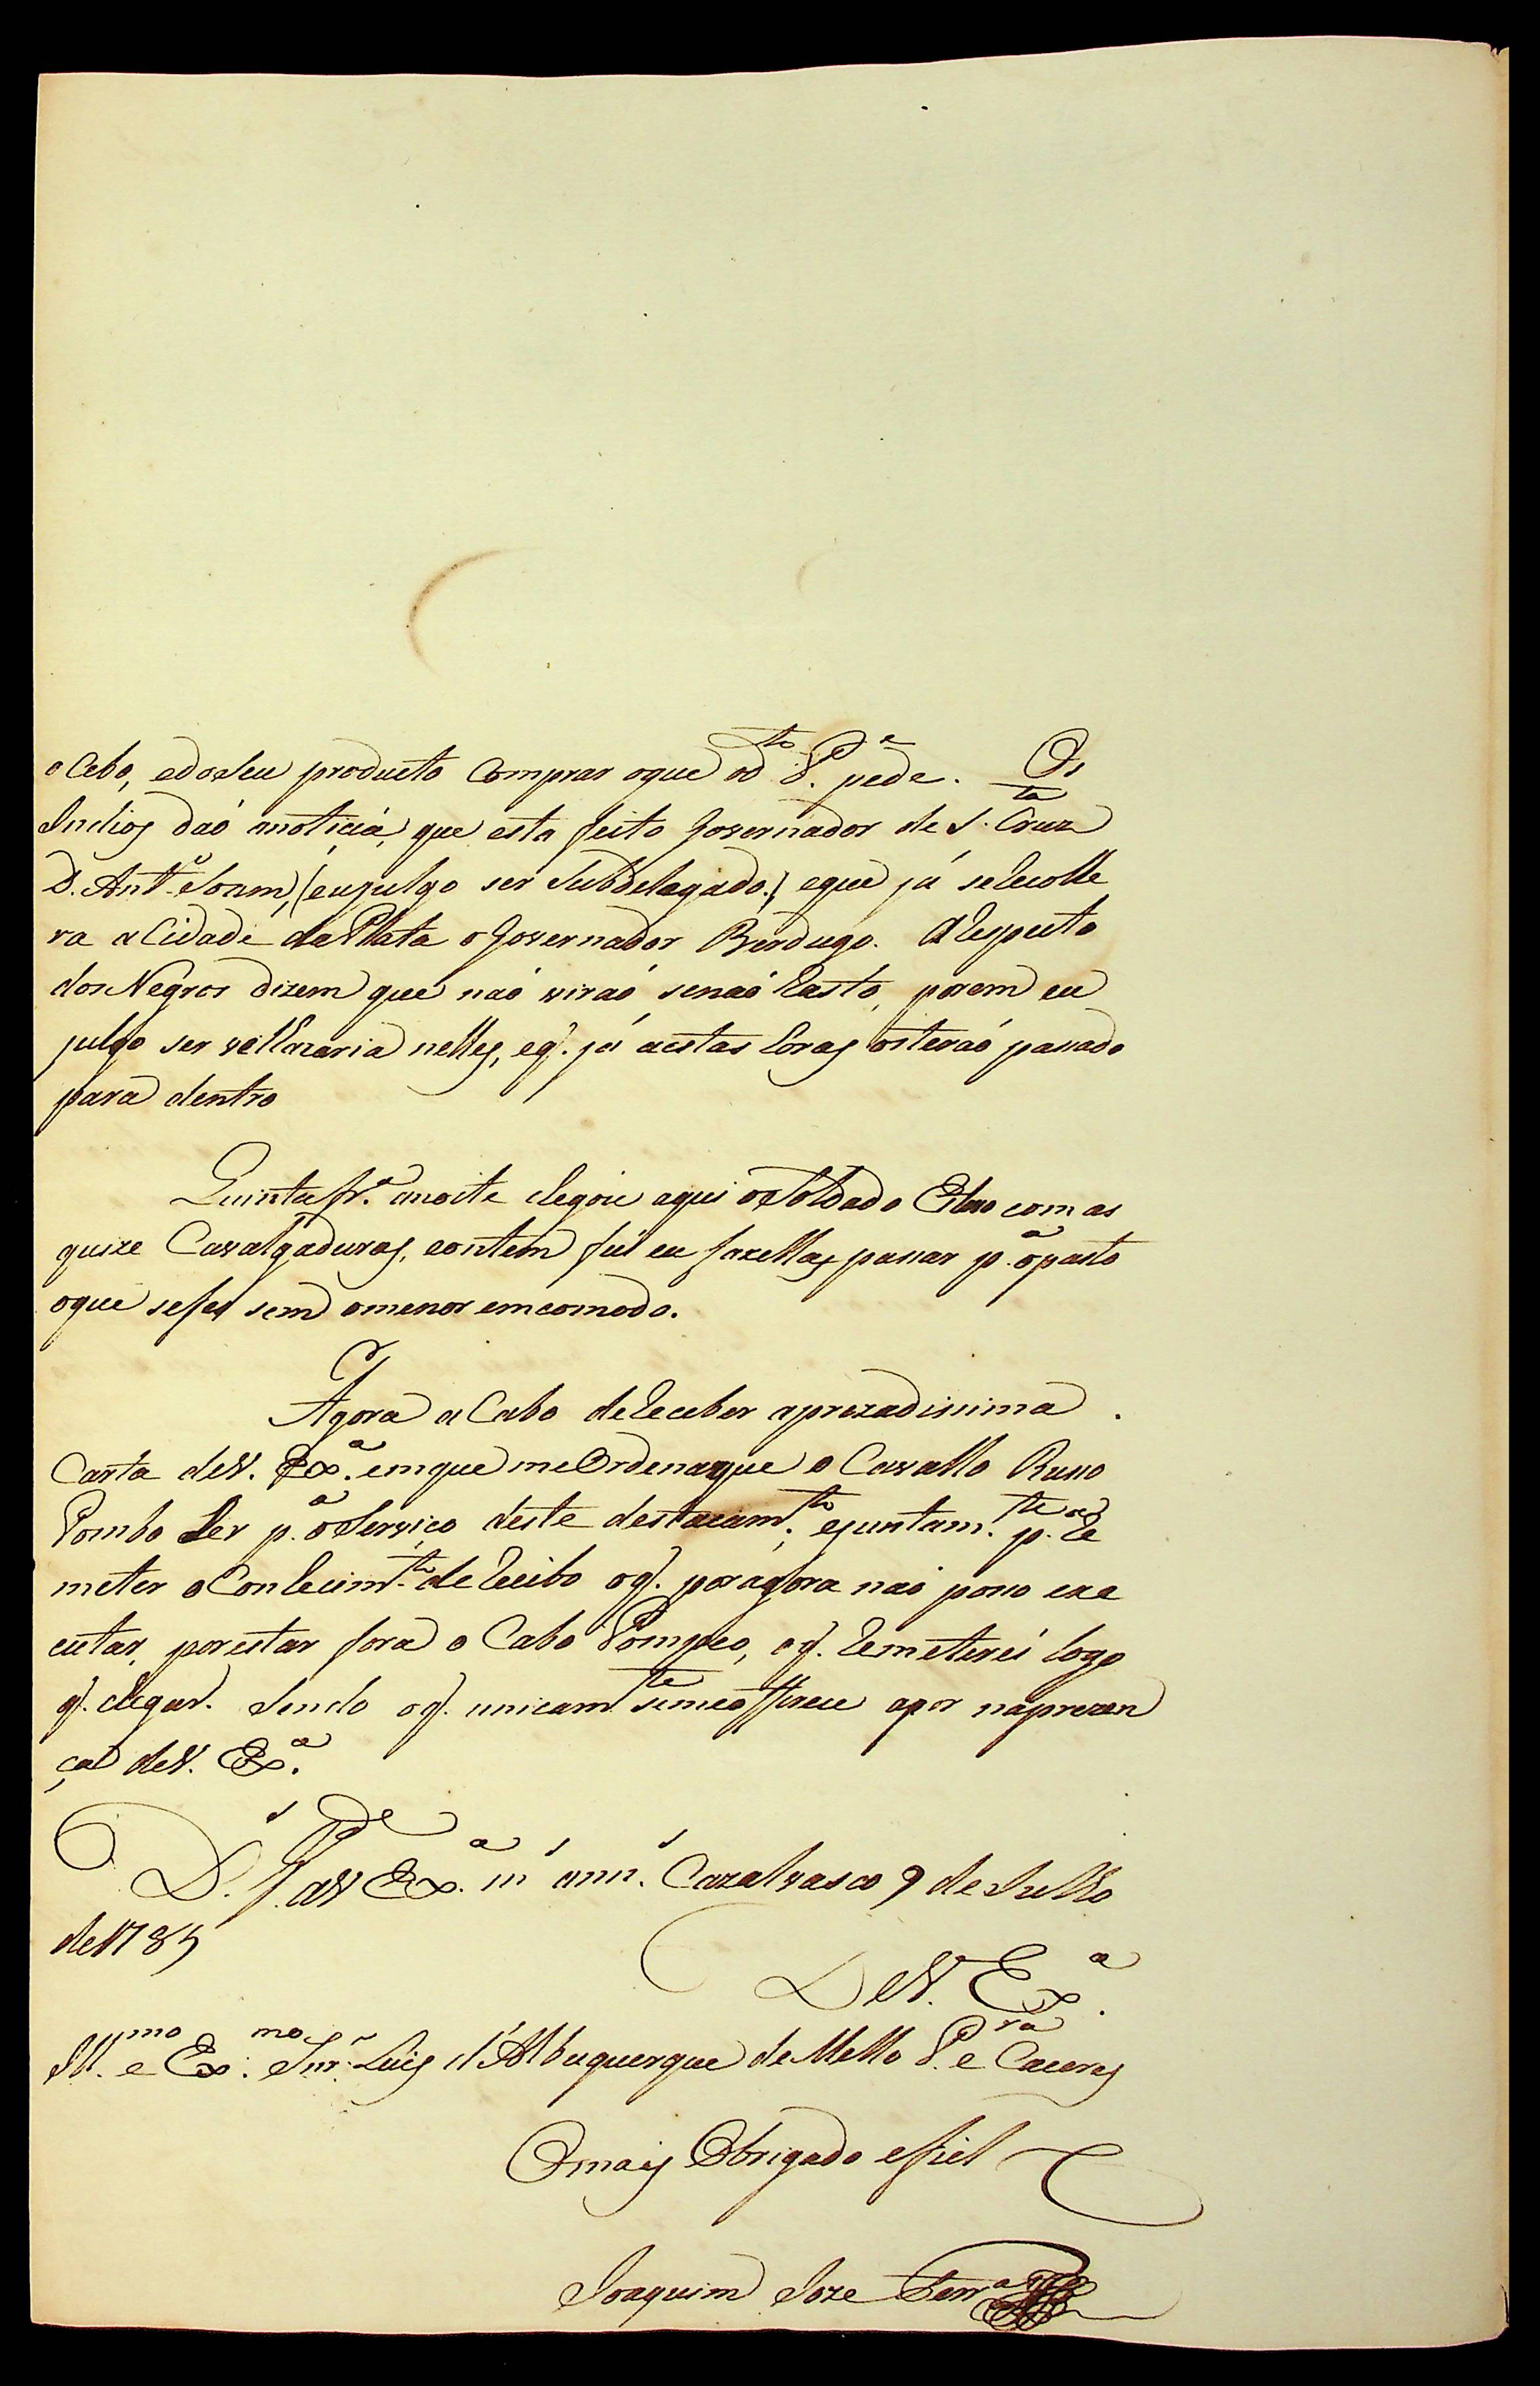 o Cebo, edoseu producto Comprar oque od.to P.e pede. Os
Indios daó anoticia, que esta feito Governador de S.ta Cruz
D. Ant.o (eujulgo ser Subdelegado.) eque já serecolhe
ra a Cidade da Plata o Governador Berdugo. ARespeito
dos Negros dizem que naó viraó senaó porem eu
julgo ser velhacaria nelles, eq. já aestas horas osteraó passado
para dentro
Quinta fr.a anoite chegou aqui oSoldado com as
quize Cavalgaduras, eontem fui eu fazellas passar p.a opasto
oque sefes sem omenor emcomodo.
Agora aCabo deReceber aprezadissima
Carta deV. Ex.a emque meOrdenaque o Cavallo Russo
Pombo p.a oServiço deste destacam.to, ejuntam.te p.a Re
meter oConhecim.to deRecibo oq. poragora naó posso exe
cutar, porestar fora o Cabo Pompeo, oq. Remeterei logo
q. chegar. Sendo oq. unicam.te semeoffrece apor naprezen
ça deV. Ex.a
D.s g.de aV Ex.a m.s ann.s Cazalvasco 9 de Julho
de1785
DeV. Ex.a
Ill.mo e Ex.mo Snr. Luis d'Albuquerque deMello P.ra e Caceres
Omais Obrigado efiel
Joaquim Joze Ferr.a